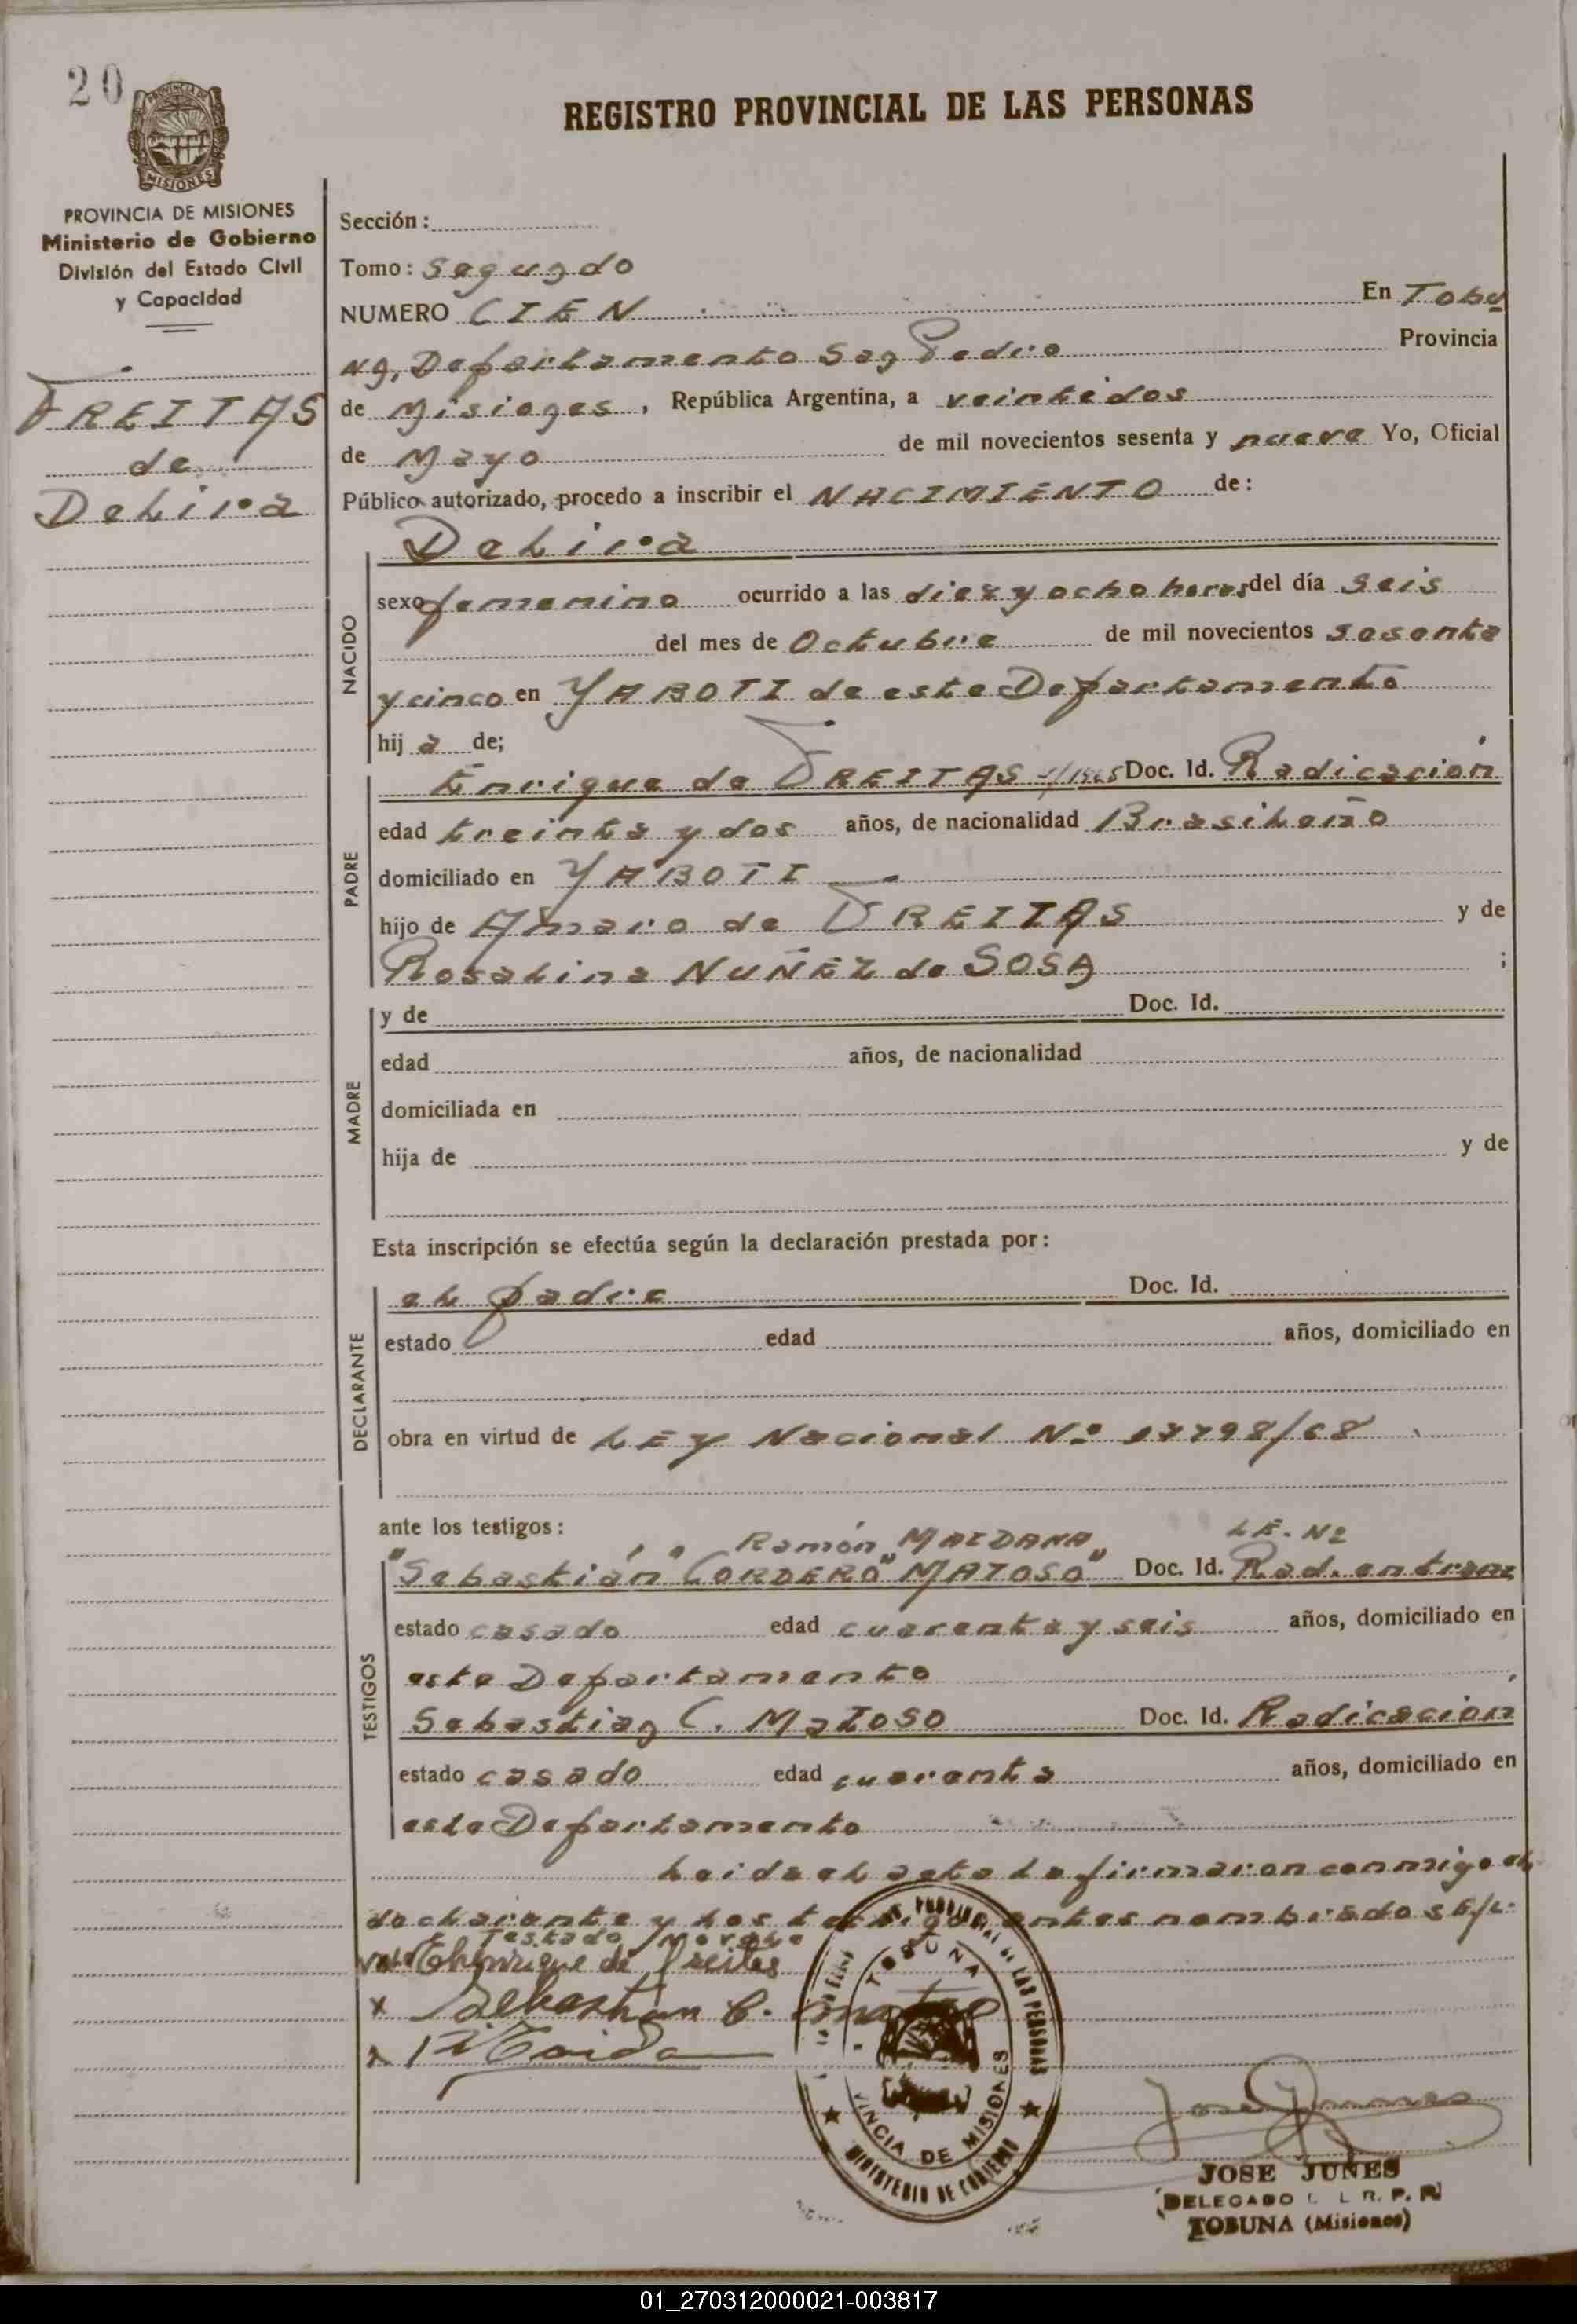 20
PROVINCIA DE MISIONES
REGISTRO PROVINCIAL DE LAS PERSONAS
PROVINCIA DE MISIONES
Ministerio de Gobierno
División del Estado Civil
y Capacidad
FREITAS
de
Delira
Sección:
Tomo: Segundo
NUMERO CIEN En Tobu
ng, Departamento San Pedro Provincia
de Misiones, República Argentina, a veintidos
de Mayo de mil novecientos sesenta y nueve Yo, Oficial
Público autorizado, procedo a inscribir el NACIMIENTO de:
Delira
NACIDO
sexo femenino ocurrido a las diez y ocho horas del día seis
del mes de Octubre de mil novecientos sesenta
y cinco en YABOTI de este Departamento
hij a de;
PADRE
Enrique de FREITAS Doc. Id. Radicación
edad treinta y dos años, de nacionalidad Brasileño
domiciliado en YABOTI
hijo de Amaro de FREITAS y de
Rosalina NUÑEZ de SOSA ;
MADRE
y de Doc. Id.
edad años, de nacionalidad
domiciliada en
hija de y de
Esta inscripción se efectúa según la declaración prestada por:
DECLARANTE
el padre Doc. Id.
estado edad años, domiciliado en
obra en virtud de LEY Nacional Nº 17798/68
ante los testigos:
TESTIGOS
Ramón MAIDANA L.E. Nº
"Sebastián" "CORDERO" "MATOSO" Doc. Id. Rad. en tram
estado casado edad cuarenta y seis años, domiciliado en
este Departamento ,
Sebastian C. MaToso Doc. Id. Radicación
estado casado edad cuarenta años, domiciliado en
este Departamento
Leida el acta la firmaron conmigo el
declarante y los testigos antes nombrados
Testado
Enrique de Freitas
x Sebastian C. Matoso
x
TOBUNA
PROVINCIA DE MISIONES
MINISTERIO DE GOBIERNO
Jose Junes
JOSE JUNES
DELEGADO L R. P. P.
TOBUNA (Misiones)
01_270312000021-003817